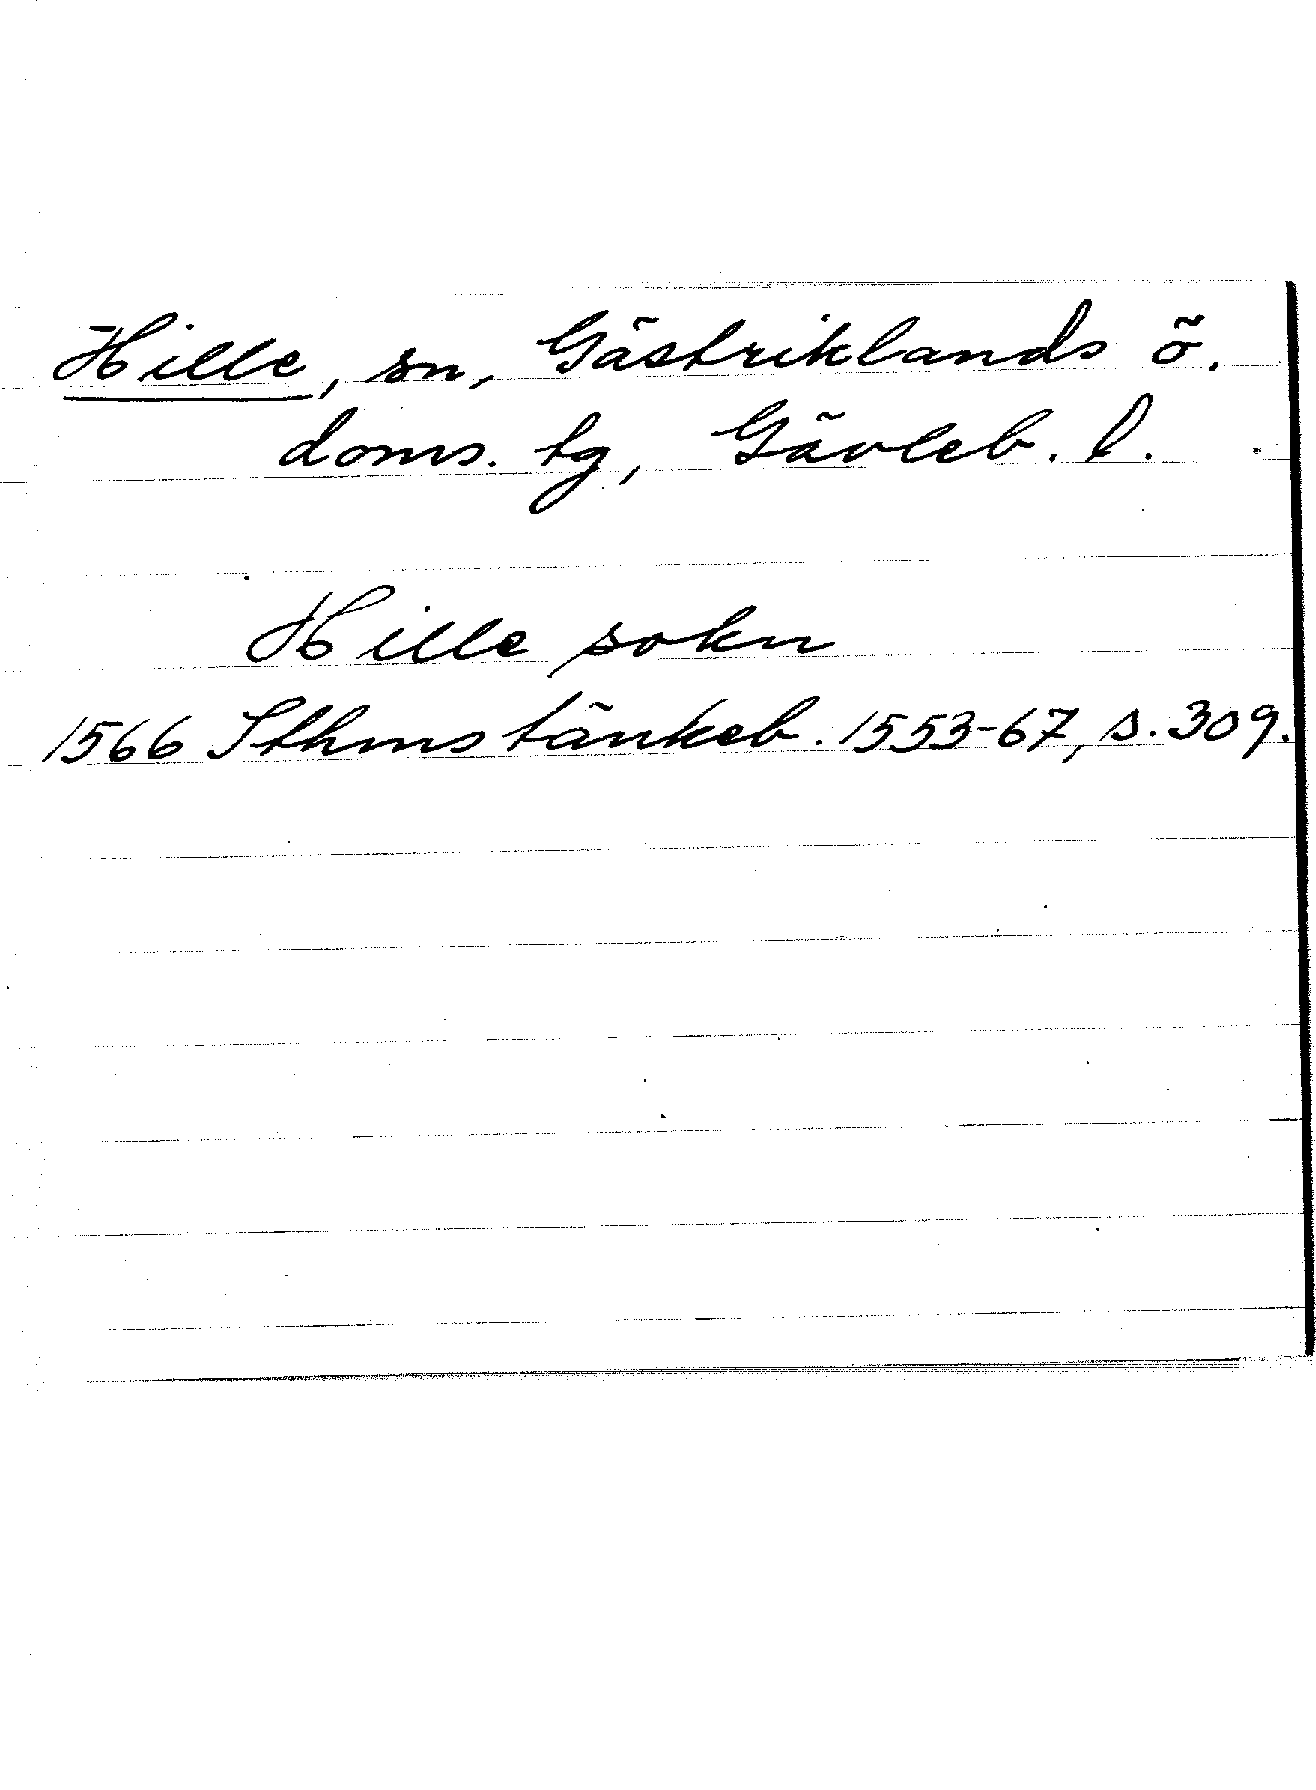 Hille, sn, Gästriklands ö.
doms. tg, Gävleb. l.
Hille sokn
1566 Sthms tänkeb. 1553-67, s. 309.